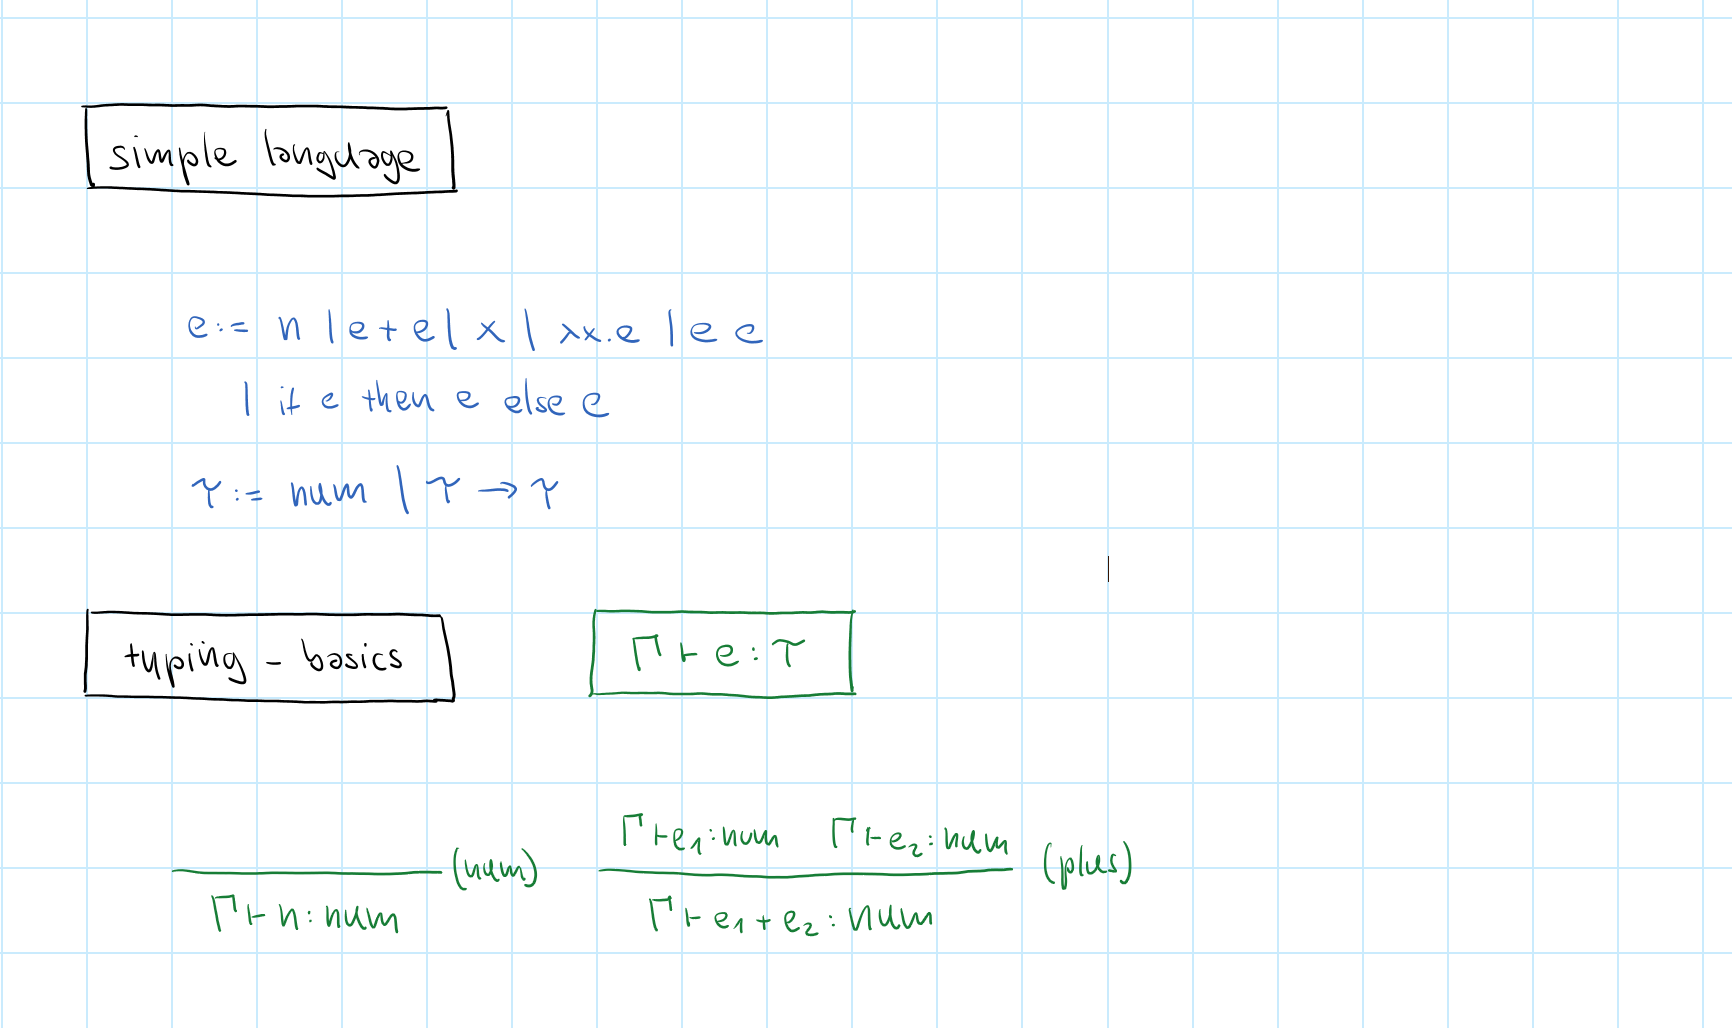 simple language
e := n | e + e | x | λx.e | e e
| if e then e else e
τ := num | τ → τ
typing - basics
Γ ⊢ e : τ
Γ ⊢ e₁ : num Γ ⊢ e₂ : num
(num) (plus)
Γ ⊢ n : num Γ ⊢ e₁ + e₂ : num